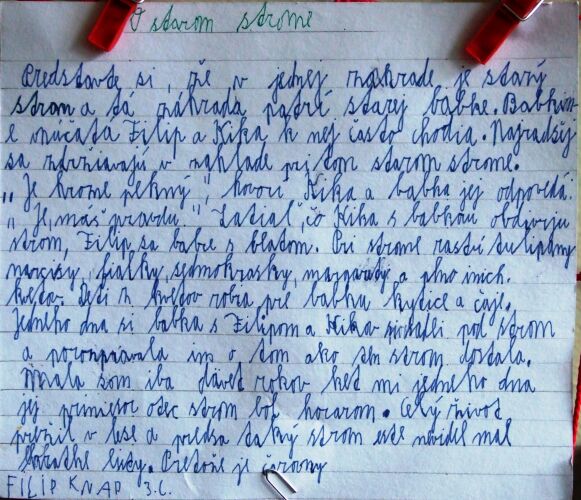 O starom strome
Predstavte si, že v jednej záhrade je starý
strom a tá záhrada patrí starej babke. Babkin
e vnúčatá Filip a Kika k nej často chodia. Najradšej
sa zdržiavajú v záhrade pri tom starom strome.
„Je krome pekný", hovorí Kika a babka jej odpovedá:
„Je, máš pravdu." Zatiaľ, čo Kika s babkou obdivuju
strom, Filip sa babre s blatom. Pri strome rastú tulipány
narcisy, fialky, sedmokrásky, margaréty a plno iných
kvetov. Deti z kvetov robia pre babku kytice a čaje.
Jedného dňa si babka s Filipom a Kikou sadli pod strom
a porozprávala im o tom ako ten strom dostala.
Mala som iba deväť rokov keď mi jedného dňa
jej priniesol otec strom bol horárom. Celý život
prežil v lese a predsa taký strom ešte nevidel mal
listy. Pretože je čarovný
FILIP KNAP 3.C.